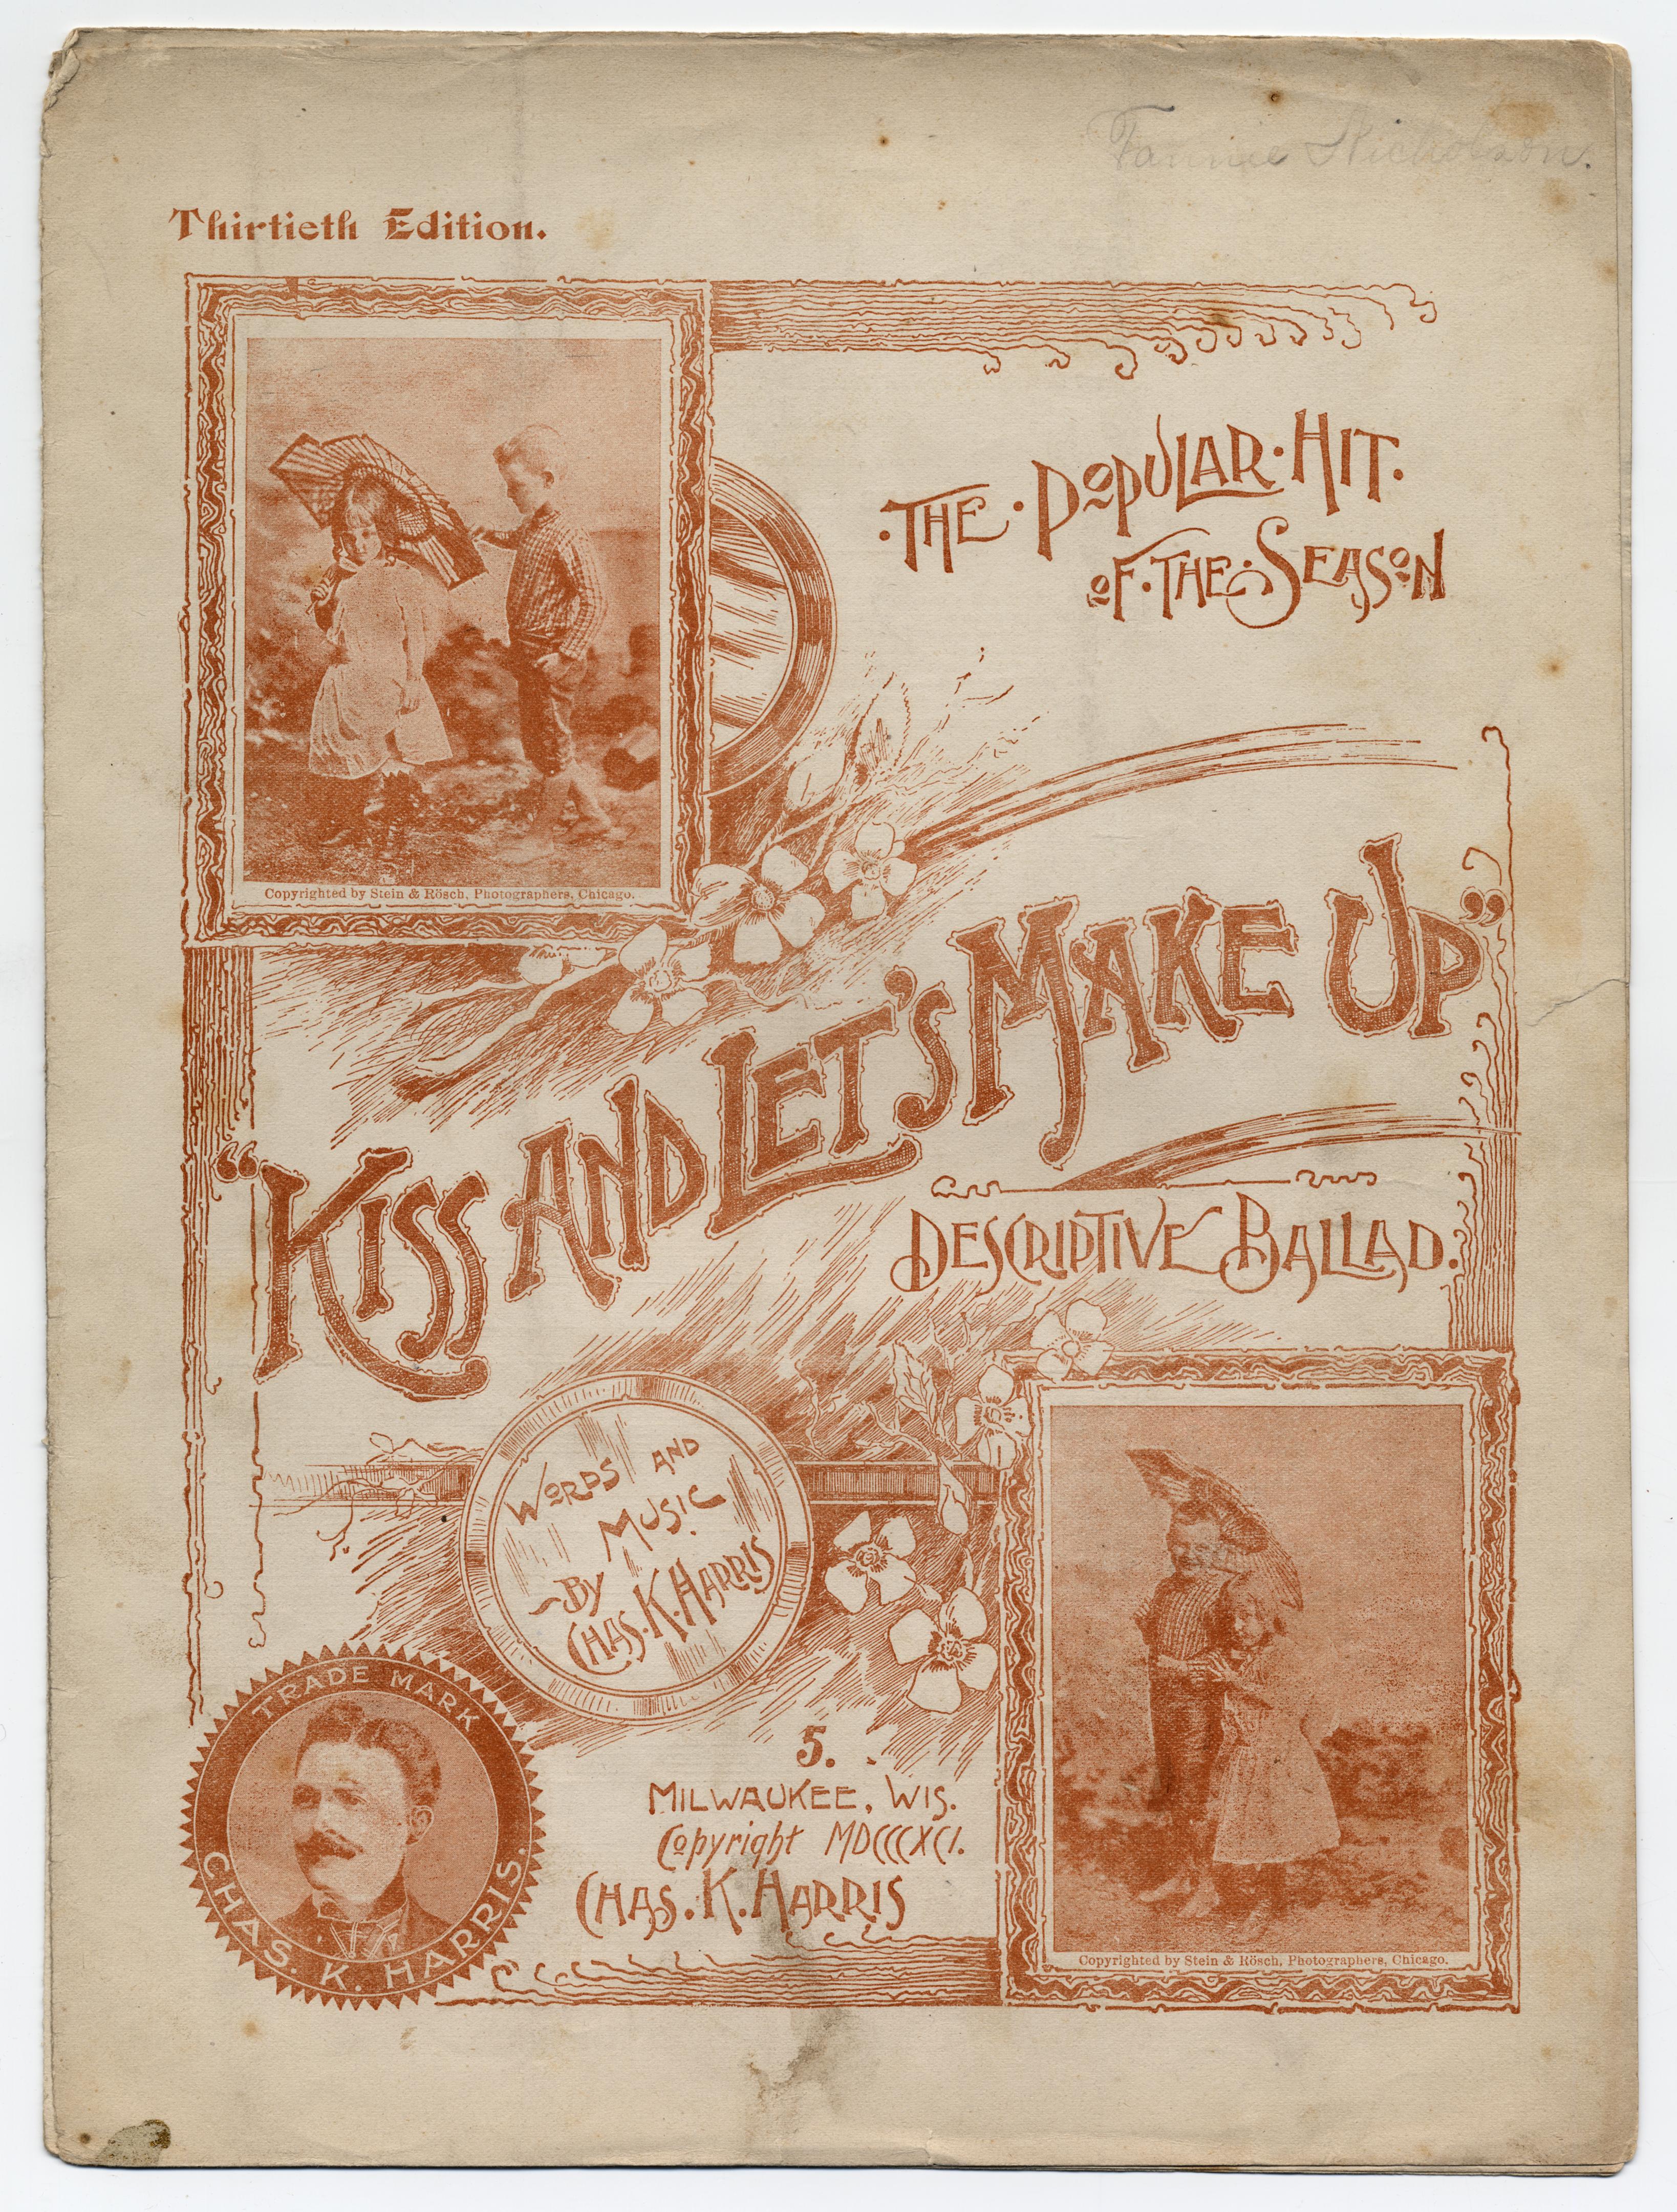 Fannie Nicholson.
Thirtieth Edition.
Copyrighted by Stein & Rösch, Photographers, Chicago.
·THE·POPULAR·HIT·
OF·THE·SEASON
"KISS AND LET'S MAKE UP"
DESCRIPTIVE BALLAD.
WORDS AND
MUSIC
~BY
CHAS. K. HARRIS
TRADE MARK
CHAS. K. HARRIS.
5.
MILWAUKEE, WIS.
Copyright MDCCCXCI.
CHAS. K. HARRIS
Copyrighted by Stein & Rösch, Photographers, Chicago.